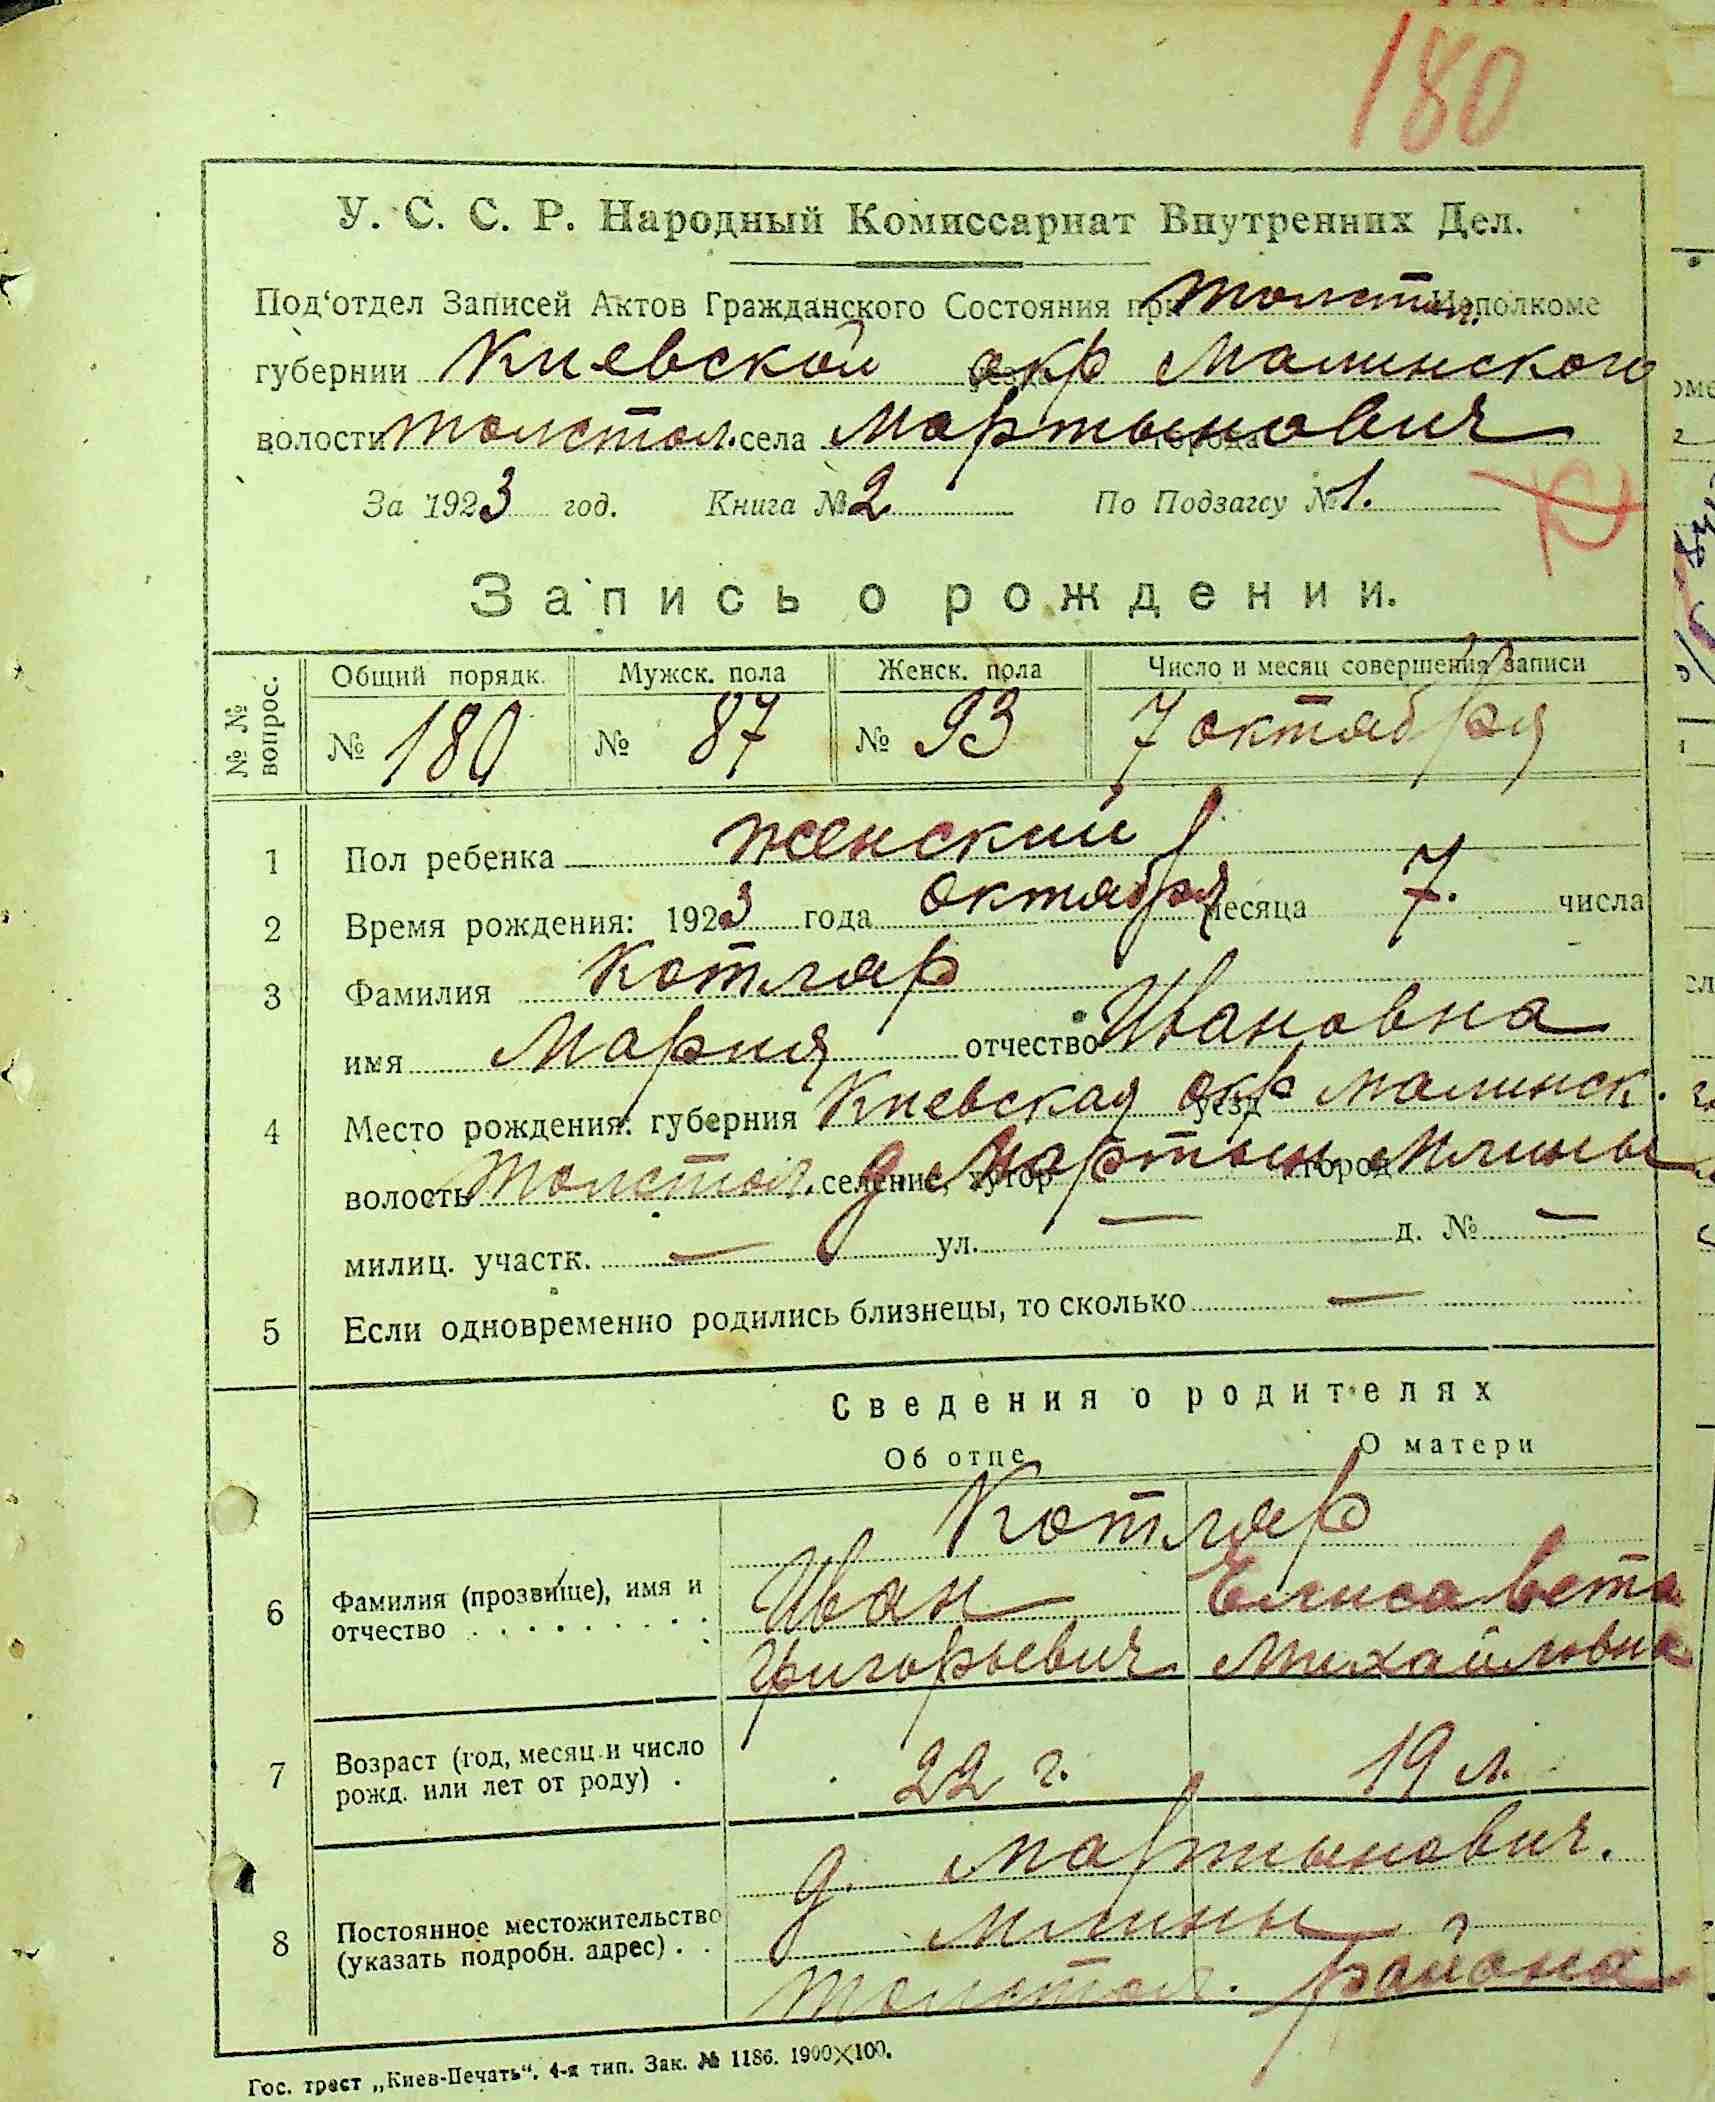 180
У. С. С. Р. Народный Комиссариат Внутренних Дел.
Под'отдел Записей Актов Гражданского Состояния при Толстол. Исполкоме
губернии Киевской окр Малинского
волости Толстол. села Мартынович города
За 1923 год. Книга № 2 По Подзагсу № 1.
Запись о рождении.
№ № вопрос. Общий порядк. Мужск. пола Женск. пола Число и месяц совершения записи
№ 180 № 87 № 93 7 октября
1 Пол ребенка женский
2 Время рождения: 1923 года октября месяца 7. числа
3 Фамилия Котляр
имя Мария отчество Ивановна
4 Место рождения: губерния Киевская окр уезд малинск.
волость Толстол. селение, хутор д. Мартын город Млины
милиц. участк. — ул. — д. № —
5 Если одновременно родились близнецы, то сколько —
Сведения о родителях
Об отце О матери
Котляр
6 Фамилия (прозвище), имя и Иван Елисавета
отчество . . . . . . . . . Григорьевич Михайловна
7 Возраст (год, месяц и число
рожд. или лет от роду) . 22 г. 19 л.
д. Мартынович.
8 Постоянное местожительство Млины
(указать подробн. адрес) . . Толстол. района
Гос. трест „Киев-Печать“. 4-я тип. Зак. № 1186. 1900×100.